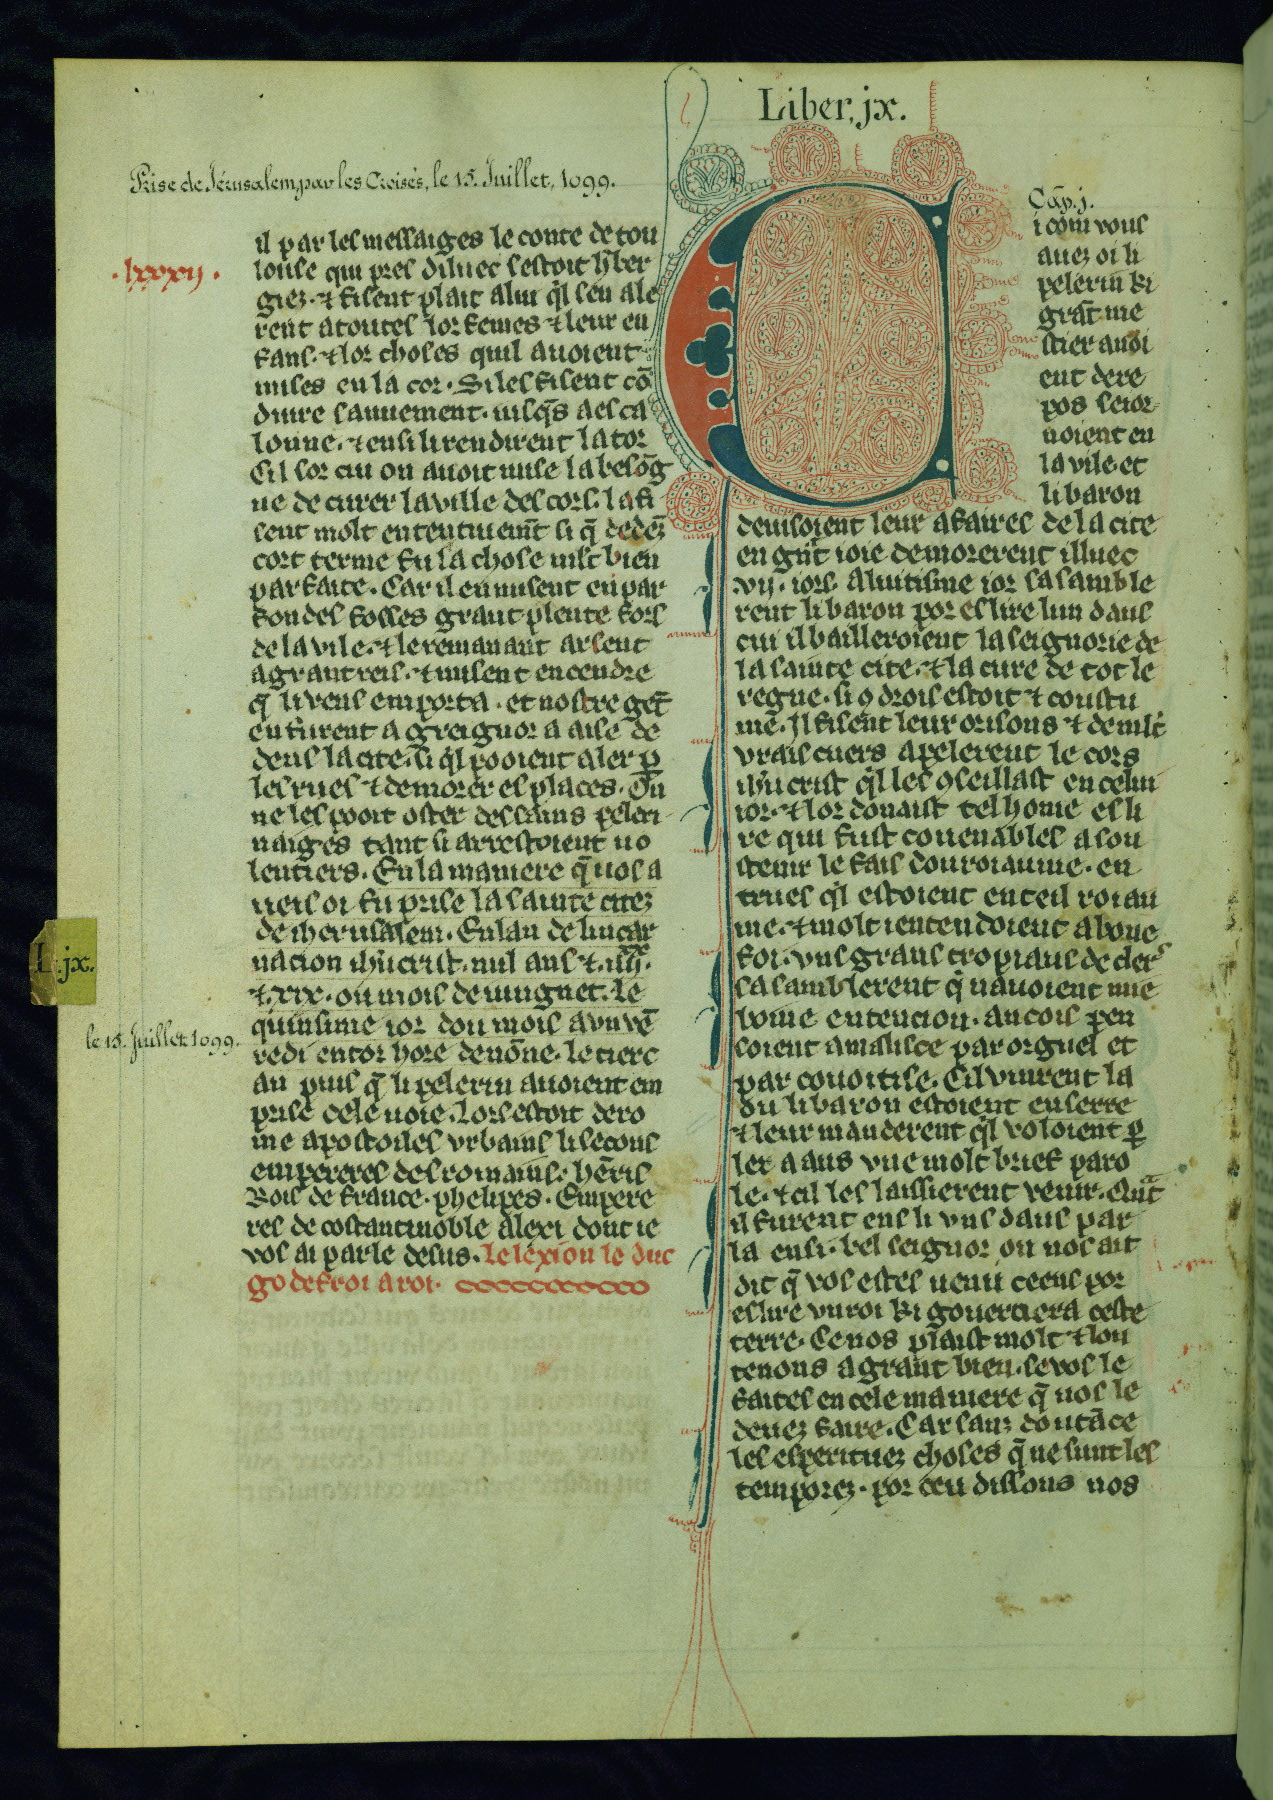 Liber, jx.
Prise de Jérusalem, par les Croisés, le 15. Juillet, 1099.
.lxxxij.
il par les messaiges le conte de tou
louse qui pres diluec sestoit h̃ber
giez. ⁊ fisent plait a lui q̃l sen ale
rent a toutes lor femes ⁊ leur en
fans. ⁊ lor choses quil auoient
mises en la tor. Si les fisent cõ
duire sauuement. iusq̃s a esca
lonne. ⁊ ensi li rendirent la tor
Cil sor cui on auoit mise la besõg
ne de curer la ville des cors. la fi
sent molt ententiuem̃t si q̃ dedẽz
cort terme fu la chose mlt bien
parfaite. Car il en misent en par
fondes fosses grant plente fors
de la vile. ⁊ le remanant arsent
a grant reis. ⁊ misent en cendre
q̃ li vens emporta. et nostre gẽt
en furent a greignor a aise de
dens la cite. si q̃l pooient aler p̱
les rues ⁊ demorer es places. On
ne les pooit oster des sains peleri
naiges tant si arrestoient vo
lentiers. En la maniere q̃ vos a
ueis oi fu prise la sainte citez
de iherusalem. En lan de lincar
nacion ih̃ucrist. mil ans ⁊ .iiij.xx
⁊ .xix. ou mois de iuingnet. Le
quinsime ior dou mois a vn vẽ
redi entor hore de nõne. le tierc
an puis q̃ li pelerin auoient em
prise cele uoie. Lors estoit de ro
me apostoiles vrbains li secons
empereres des romains. hẽris
Rois de france. phelipes. Empere
res de costantinoble alexi dont ie
vos ai parle desus. le lexion le duc
godefroi a roi.
L. jx.
le 15. Juillet 1099.
Cap. j.
i com vous
auez oi li
pelerin ki
grãt me
stier auoi
ent de re
pos seior
noient en
la vile. et
li baron
deuisoient leur afaires de la cite
en gñt ioie demorerent illuec
.vij. iors. Al uitisme ior sasamble
rent li baron por eslire lun daus
cui il bailleroient la seignorie de
la sainte cite. ⁊ la cure de tot le
regne. si ꝯ drois estoit ⁊ coustu
me. Il fisent leur orisons ⁊ de mlt
vrais cuers apelerent le cors
ih̃ucrist q̃l les ꝯseillast en celui
ior. ⁊ lor donaist tel home esli
re qui fust couenables a sou
stenir le fais dou roiaume. en
trues q̃l estoient en teil roiau
me. ⁊ molt i entendoient a bone
foi. vns grans tropiaus de clers
sasamblerent q̃ nauoient mie
boine entencion. ancois pen
soient a malisce par orguel et
par couoitise. Cil vinrent la
ou li baron estoient enserre
⁊ leur manderent q̃l voloient p̱
ler a aus vne molt brief paro
le. ⁊ cil les laissierent venir. Q̃nt
il furent ens li vns daus par
la ensi. bel seignor on nos ait
dit q̃ vos estes uenu ceens por
eslire vn roi ki gouernera ceste
terre. Ce nos plaist molt ⁊ lou
tenons a grant bien. se vos le
faites en cele maniere q̃ vos le
deuez faire. Car sanz doutãce
les esperituez choses q̃ ne sunt les
temporez. por ceu dissons nos